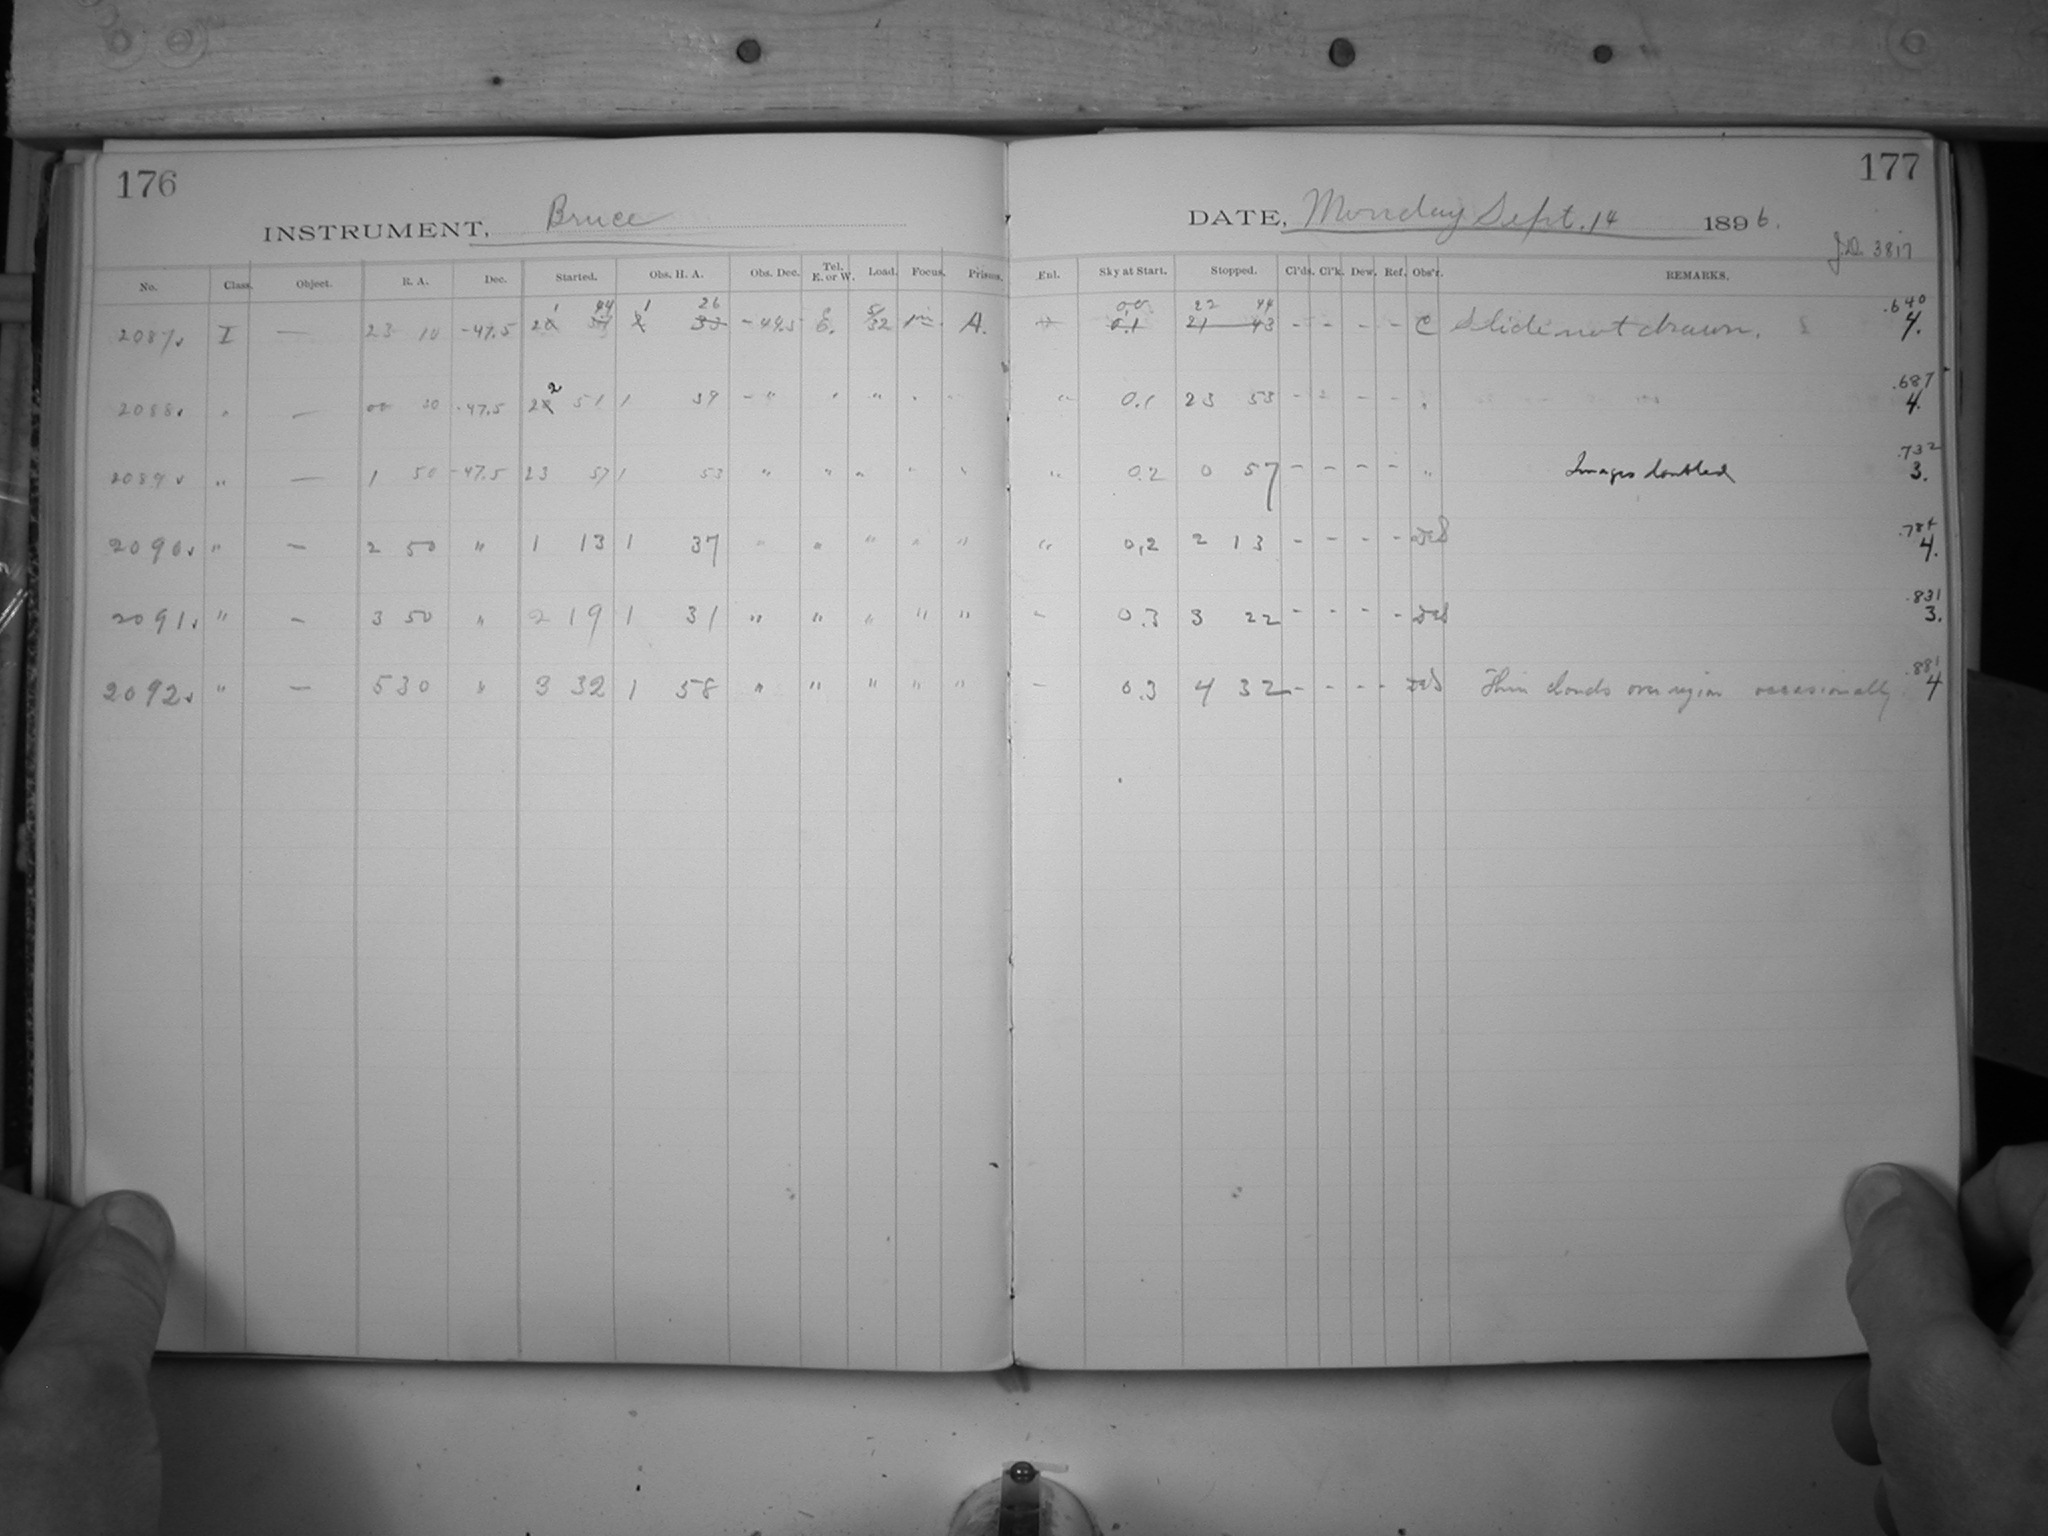 176
177
INSTRUMENT, Bruce
DATE, Monday Sept. 14 1896.
J.D. 3817
No. Class. Object. R. A. Dec. Started. Obs. H. A. Obs. Dec. Tel. E. or W. Load. Focus. Prisms. Enl. Sky at Start. Stopped. Cl'ds. Cl'k. Dew. Ref. Obs'r. REMARKS.
1 44 1 26 0,0 22 44 .640
2087 I — 23 10 -47.5 20 37 2 33 -49.5 E. 5/32 A. 0.1 21 43 - - - - C Slide not drawn. 4.
2 .687
2088 " — 00 30 -47.5 20 51 1 39 - " " " " " " 0.1 23 53 - - - - " 4.
.732
2089 " — 1 50 -47.5 23 57 1 53 " " " " " " 0.2 0 57 - - - - " Images doubled 3.
2090 " — 2 50 " 1 13 1 37 " " " " " " 0,2 2 13 - - - - 4.
.831
2091 " — 3 50 " 2 19 1 31 " " " " " " 0.3 3 22 - - - - 3.
.881
2092 " — 5 30 " 3 32 1 58 " " " " " — 0.3 4 32 - - - - Thin clouds over region occasionally. 4